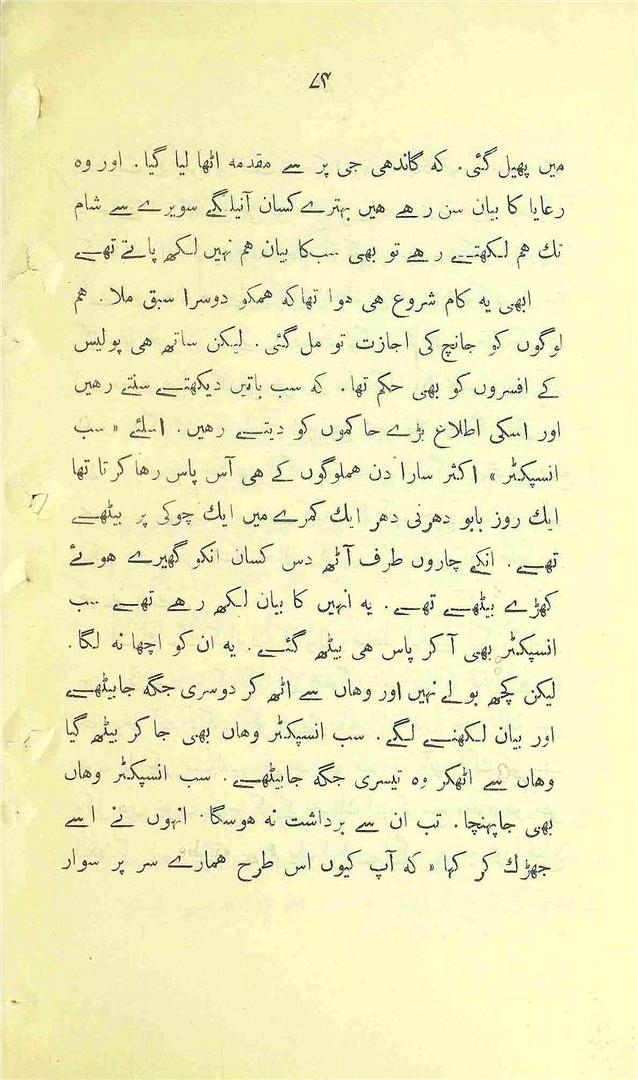 ۸۴
میں پھیل گئی. کہ گاندھی جی پر سے مقدمہ اٹھا لیا گیا. اور وہ
رعایا کا بیان سن رھے ھیں بہترے کسان آنیلگے سویرے سے شام
تك ھم لکھتے رھے تو بھی سبکا بیان ھم نہیں لکھ پاتے تھے
ابھی یہ کام شروع ھی ھوا تھاکہ ھمکو دوسرا سبق ملا. ھم
لوگوں کو جانچ کی اجازت تو مل گئی. لیکن ساتھ ھی پولیس
کے افسروں کو بھی حکم تھا. کہ سب باتیں دیکھتے سنتے رھیں
اور اسکی اطلاع بڑے حاکموں کو دیتے رھیں. اسلئے « سب
انسپکٹر » اکثر سارا دن ھملوگوں کے ھی آس پاس رھا کرتا تھا
ایك روز بابو دھرنی دھر ایك کمرے میں ایك چوکی پر بیٹھے
تھے. انکے چاروں طرف آٹھ دس کسان انکو گھیرے ھوئے
کھڑے بیٹھے تھے. یہ انہیں کا بیان لکھ رھے تھے سب
انسپکٹر بھی آ کر پاس ھی بیٹھ گئے. یہ ان کو اچھا نہ لگا.
لیکن کچھ بولے نہیں اور وھاں سے اٹھ کر دوسری جگہ جابیٹھے
اور بیان لکھنے لگے. سب انسپکٹر وھاں بھی جا کر بیٹھ گیا
وھاں سے اٹھکر وہ تیسری جگہ جابیٹھے. سب انسپکٹر وھاں
بھی جاپہنچا. تب ان سے برداشت نہ ھوسگا. انہوں نے اسے
جھڑك کر کہا « کہ آپ کیوں اس طرح ھمارے سر پر سوار